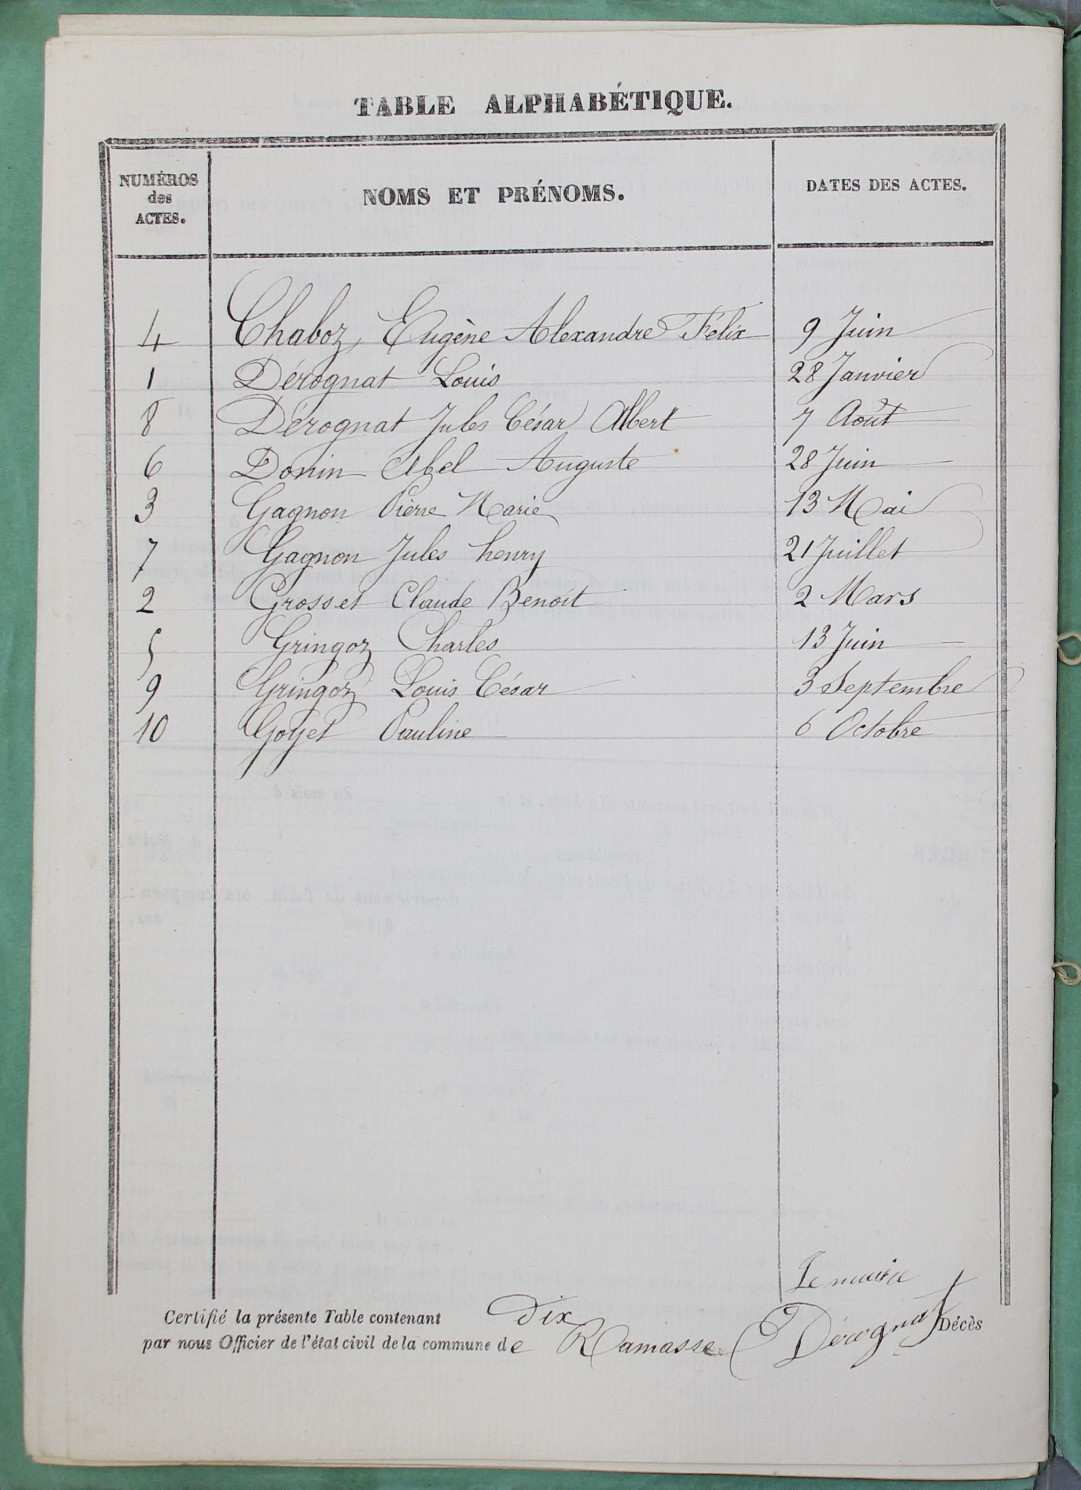 TABLE ALPHABÉTIQUE.
NUMÉROS des ACTES.
NOMS ET PRÉNOMS.
DATES DES ACTES.
4 Chaboz, Eugène Alexandre Félix 9 Juin
1 Dérognat Louis 28 Janvier
8 Dérognat Jules César Albert 7 Août
6 Donin Abel Auguste 28 Juin
3 Gagnon Pierre Marie 13 Mai
7 Gagnon Jules henry 21 Juillet
2 Grosset Claude Benoit 2 Mars
5 Gringoz Charles 13 Juin
9 Gringoz Louis César 3 Septembre
10 Goyet Pauline 6 Octobre
Le maire
Certifié la présente Table contenant Dix Décès
par nous Officier de l'état civil de la commune de Ramasse Dérognat